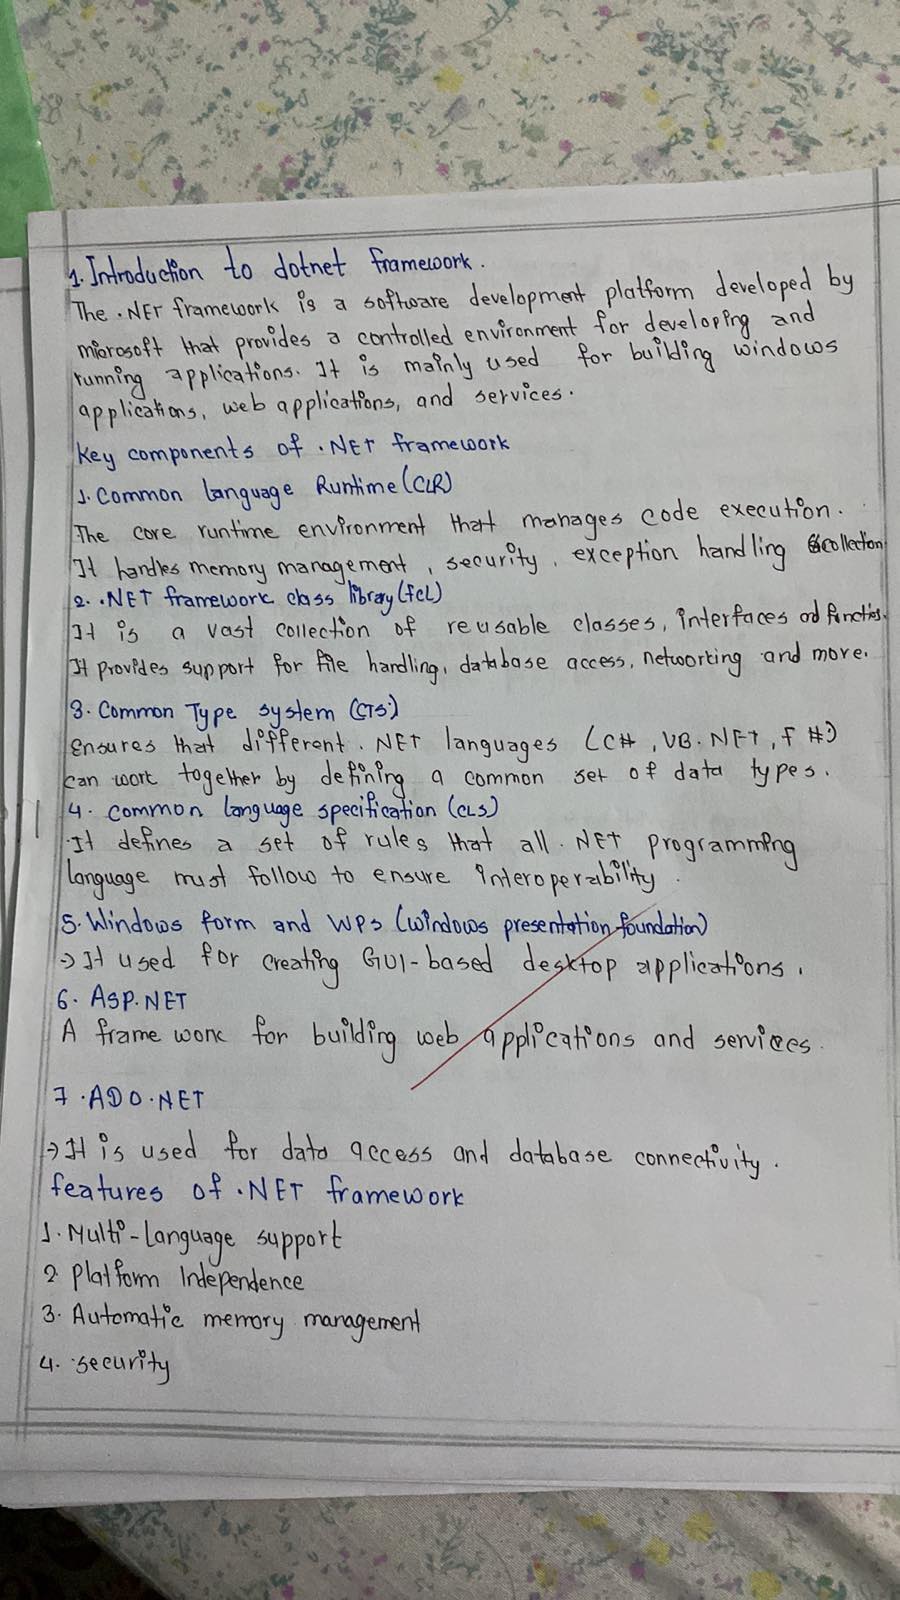 1. Introduction to dotnet framework.
The .NET framework is a software development platform developed by
microsoft that provides a controlled environment for developing and
running applications. It is mainly used for building windows
applications, web applications, and services.
Key components of .NET framework
1. Common language Runtime (CLR)
The core runtime environment that manages code execution.
It handles memory management, security, exception handling collection
2. .NET framework class library (fCL)
It is a vast collection of reusable classes, interfaces and
It provides support for file handling, database access, networking and more.
3. Common Type system (CTS)
Ensures that different .NET languages (C#, VB.NET, F#)
can work together by defining a common set of data types.
4. common language specification (CLS)
It defines a set of rules that all .NET programming
language must follow to ensure interoperability.
5. Windows form and WPS (windows presentation foundation)
→ It used for creating GUI-based desktop applications.
6. ASP.NET
A frame work for building web applications and services.
7. ADO.NET
→ It is used for data access and database connectivity.
features of .NET framework
1. Multi-Language support
2 Platform Independence
3. Automatic memory management
4. security